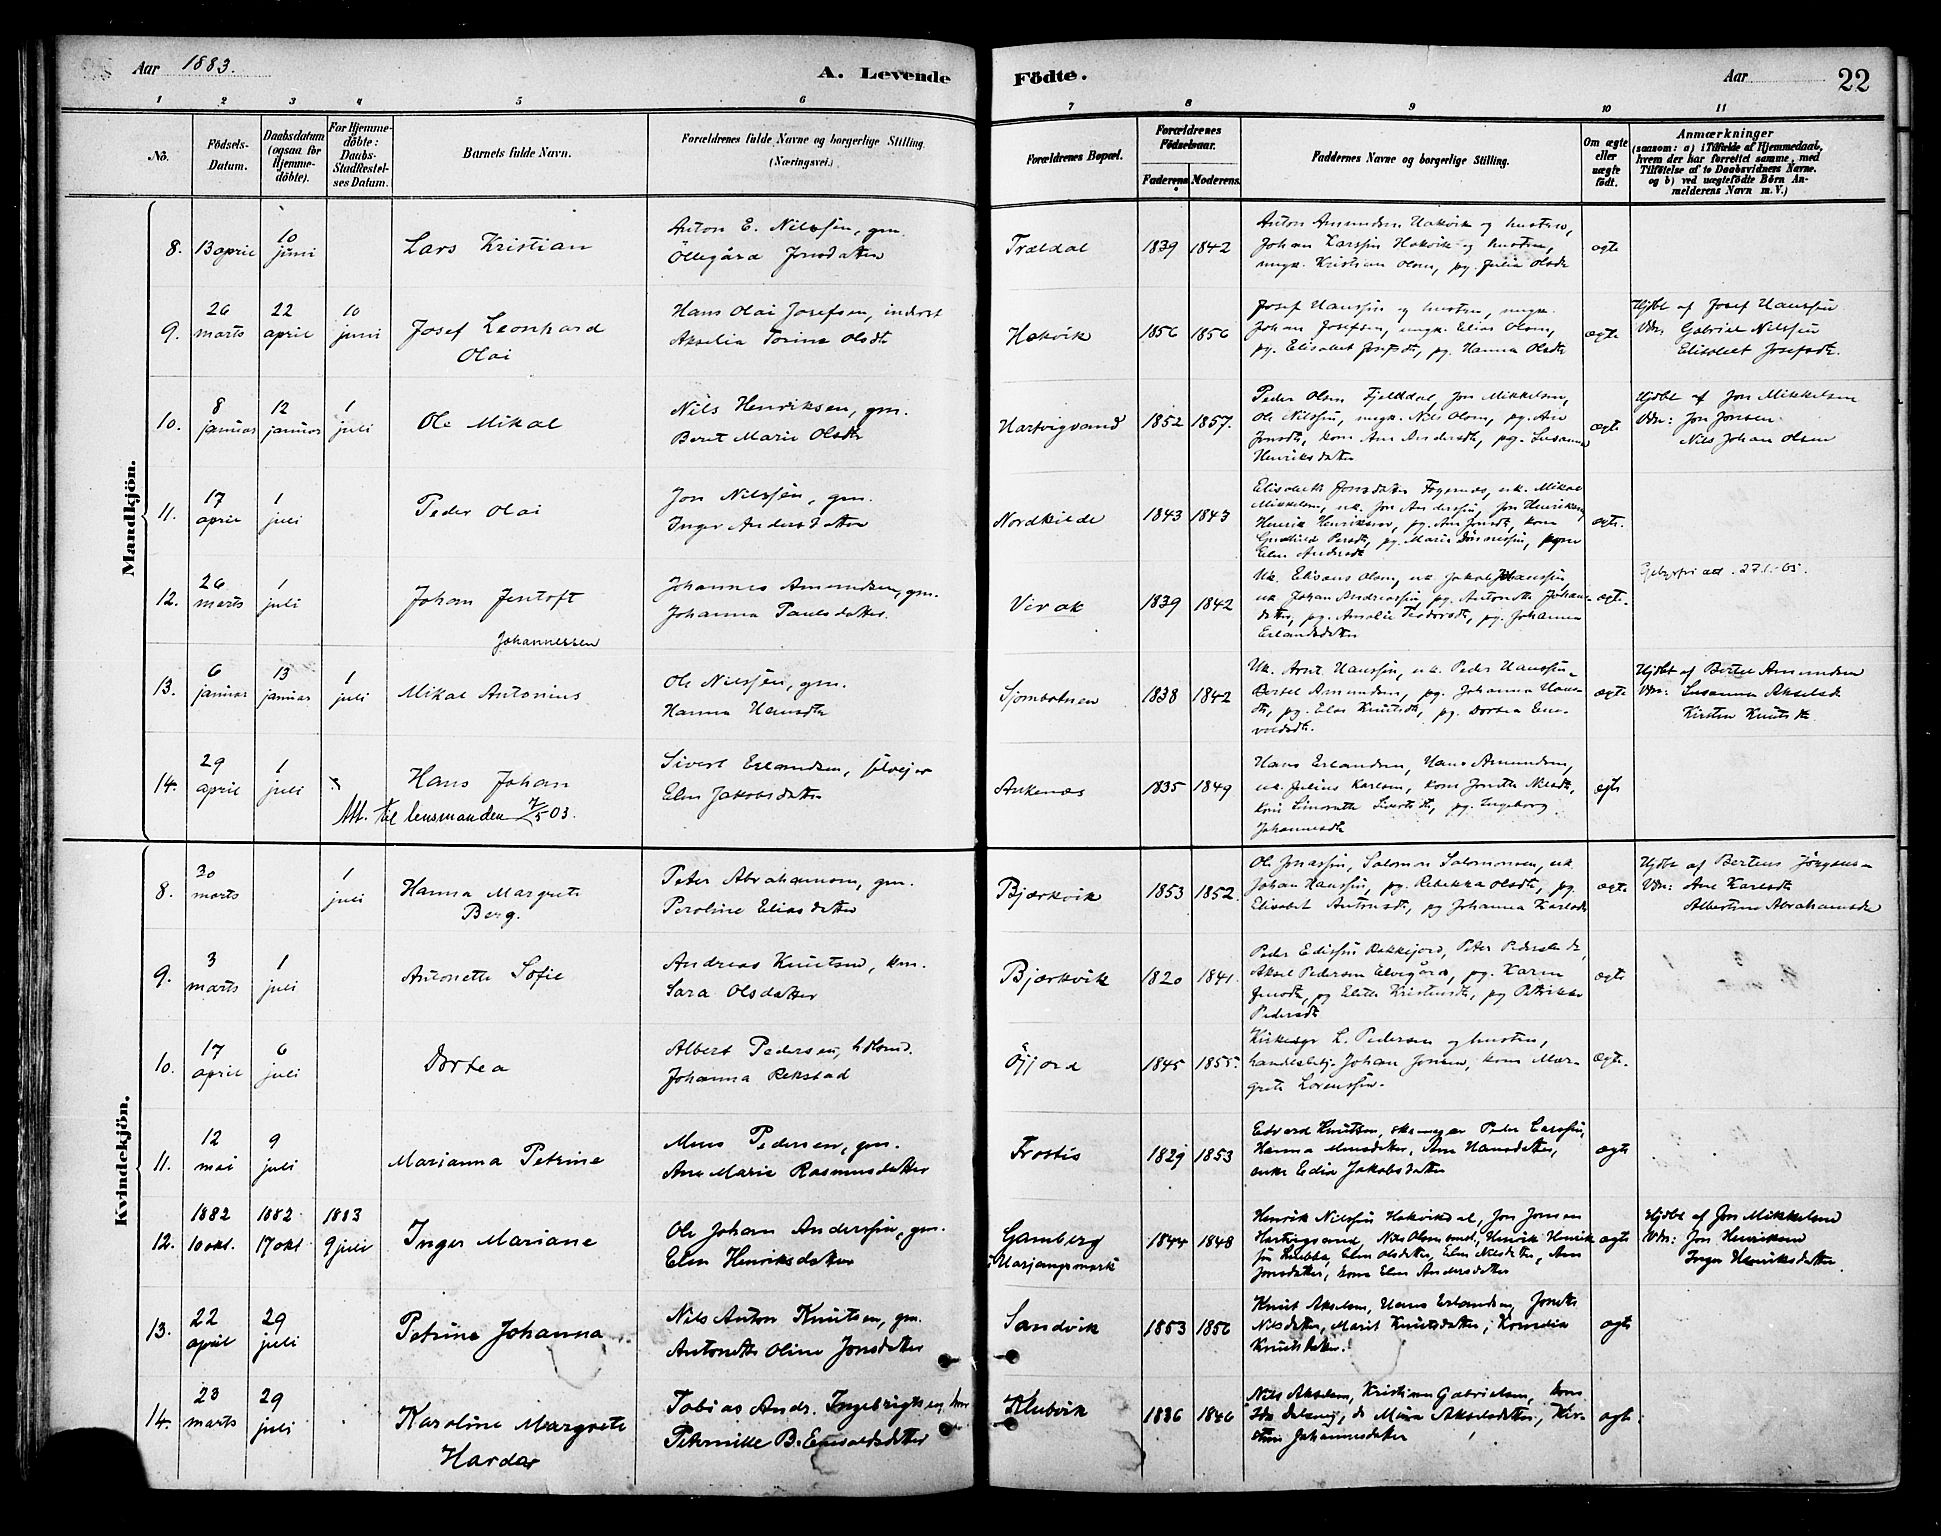 Aar 1883.
A. Levende Födte.
Aar
22
1 2 3 4 5 6 7 8 9 10 11
No.
Födsels-Datum.
Daabsdatum (ogsaa för Hjemme-döbte).
For Hjemme-döbte: Daabs-Stadfæstel-ses Datum.
Barnets fulde Navn.
Forældrenes fulde Navne og borgerlige Stilling.
(Næringsvei.)
Forældrenes Bopæl.
Forældrenes Födselsaar.
Faderens Moderens.
Faddernes Navne og borgerlige Stilling.
Om ægte eller uægte födt.
Anmærkninger
(saasom: a) i Tilfælde af Hjemmedaab, hvem der har forrettet samme, med Tilföielse af to Daabsvidners Navne. og b) ved uægtefödte Börn An-melderens Navn m. V.)
Mandkjön.
8. 13 april 10 juni Lars Kristian
Anton E. Nilssen, gm.
Öllegård Jonsdatter
Trældal 1839 1842
Anton Amundsen Hakvik og hustru,
Johan Larssen Hakvik og hustru,
ungk. Kristian Olsen, pg. Julia Olsdt
ægte
9. 26 marts 22 april 10 juni Josef Leonhard
Olai
Hans Olai Josefsen, inderst
Akselia Torine Olsdt
Hakvik 1856 1856
Josef Hanssen og hustru, ungk.
Johan Josefsen, ungk. Elias Olsen,
pg. Elisabet Josefsdt, pg. Hanna Olsdt
ægte
Hjdbt af Josef Hanssen
Vdn: Gabriel Nilssen
Elisabet Josefsdt.
10. 8 januar 12 januar 1 juli Ole Mikal
Nils Henriksen, gm.
Beret Marie Olsdt
Hartvigvand 1852 1857.
Peder Olsen Fjelddal, Jon Mikkelsen,
Ole Nilssen, ungk. Nils Olsen, pg. Ane
Jonsdt, kone Ane Andersdt, pg. Susanna
Henriksdatter
ægte
Hjdbt af Jon Mikkelsen
Vdn: Jon Jonsen
Nils Johan Olsen
11. 17 april 1 juli Peder Olai
Jon Nilssen, gm.
Inger Andersdatter
Nordkilde 1843 1843
Elisabeth Jonsdatter Fagernes, uk. Mikal
Mikkelsen, uk. Jon Anderssen, Jon Henriksen,
Henrik Henriksen, pg. Ane Jonsdt, kone
Persdt, pg. Marie
Elen Andersdt
ægte.
12. 26 marts 1 juli Johan Jentoft
Johannessen
Johannes Amundsen, gm.
Johanna Paulsdatter.
Virak 1839 1842
Uk. Elisæus Olsen, uk Jakob Johanssen,
uk Johan Andreassen, pg. Antonette Johans-
datter, pg. Amalie Teodorsdt, pg. Johanna
Erlandsdatter
ægte.
27.1.-65.
13. 6 januar 13 januar 1 juli Mikal Antonius
Ole Nilssen, gm.
Hanna Hansdtr
Sjombotnen 1838 1842
Uk. Arnt Hanssen, uk. Peder Hanssen
Bertel Amundsen, pg. Johanna Hans-
dt, pg. Elen Knutsdt, pg. Dortea Ene-
voldsdt.
ægte
Hjdbt af Bertel Amundsen
Vdn: Susanna Akselsdt
Kirsten Knutsdt.
14. 29 april 1 juli Hans Johan
Att. til lensmanden 7/5 03.
Sivert Erlandsen, selvejer
Elen Jakobsdatter
Ankenæs 1835 1849
Hans Erlandsen, Hans Amundsen,
uk. Julius Karlsen, kone Jonette Nilsdt,
Sivertsdt, pg. Ingeborg
Johannesdt
ægte
Kvindekjön.
8. 30 marts 1 juli Hanna Margrete
Berg.
Peter Abrahamsen, gm.
Peroline Eliasdatter
Bjærkvik 1853 1852.
Ole Jonassen, Salomon Salomonsen, uk
Johan Hanssen, pg. Rebekka Olsdt, pg.
Elisabet Antonsdt, pg Johanna Karlsdt
ægte
Hjdbt af Berteus Jörgens-
Vdn: Ane Karlsdt
Albertine Abrahamsdt
9. 3 marts 1 juli Antonette Sofie
Andreas Knutsen, km.
Sara Olsdatter
Bjærkvik 1820 1841.
Peder Edissen Rakkejord, Peter Pedersen
Aksel Pedersen Elvegård, pg. Karen
Jensdt, pg Elette Kristensdt, pg Petrikke
Pedersdt
ægte
10. 17 april 6 juli Dortea
Albert Pedersen,
Johanna Rekstad
Öijord 1845 1855.
Kirkesgr L. Pedersen og hustru,
handelsbetj. Johan Jonsen, kone Mar-
grete Lorenssen.
ægte.
11. 12 mai 9 juli Marianna Petrine
Mons Pedersen, gm.
Ane Marie Rasmusdatter
Frostis 1829 1853
Edvard Knutsen, Peder Larssen,
Hanna Monsdatter, Ane Hansdatter,
enke Edia Jakobsdatter
ægte
12. 1882 10 okt. 1882. 17 okt 1883 9 juli Inger Mariane
Ole Johan Anderssen, gm.
Elen Henriksdatter
Gamberg
i Harjangsmark 1844 1848
Henrik Nilssen Hakvikdal, Jon Jonsen
Hartvigvand, Nils Olsen Henrik Henrik-
sen Elen Olsdatter, Elen Nilsdatter, Ane
Jonsdatter, kone Elen Andersdatter
ægte
Hjdbt af Jon Mikkelsen
Vdn: Jon Henriksen
Inger Henriksdatter.
13. 22 april 29 juli Petrine Johanna
Nils Anton Knutsen, gm.
Antonette Oline Jonsdatter
Sandvik 1853 1856
Knut Akselsen, Hans Erlandsen, Jonette
Nilsdatter, Marit Knutsdatter, Kornelia
Knutsdatter.
ægte
14. 23 marts 29 juli Karoline Margrete
Hardar
Tobias Andr. Ingebrigtsen
Peternille B. Enevoldsdatter
Klubvik 1836 1846
Nils Akselsen, Kristian Gabrielsen, kone
Ida Akselsdatter, Kir-
stine Johannesdatter
ægte